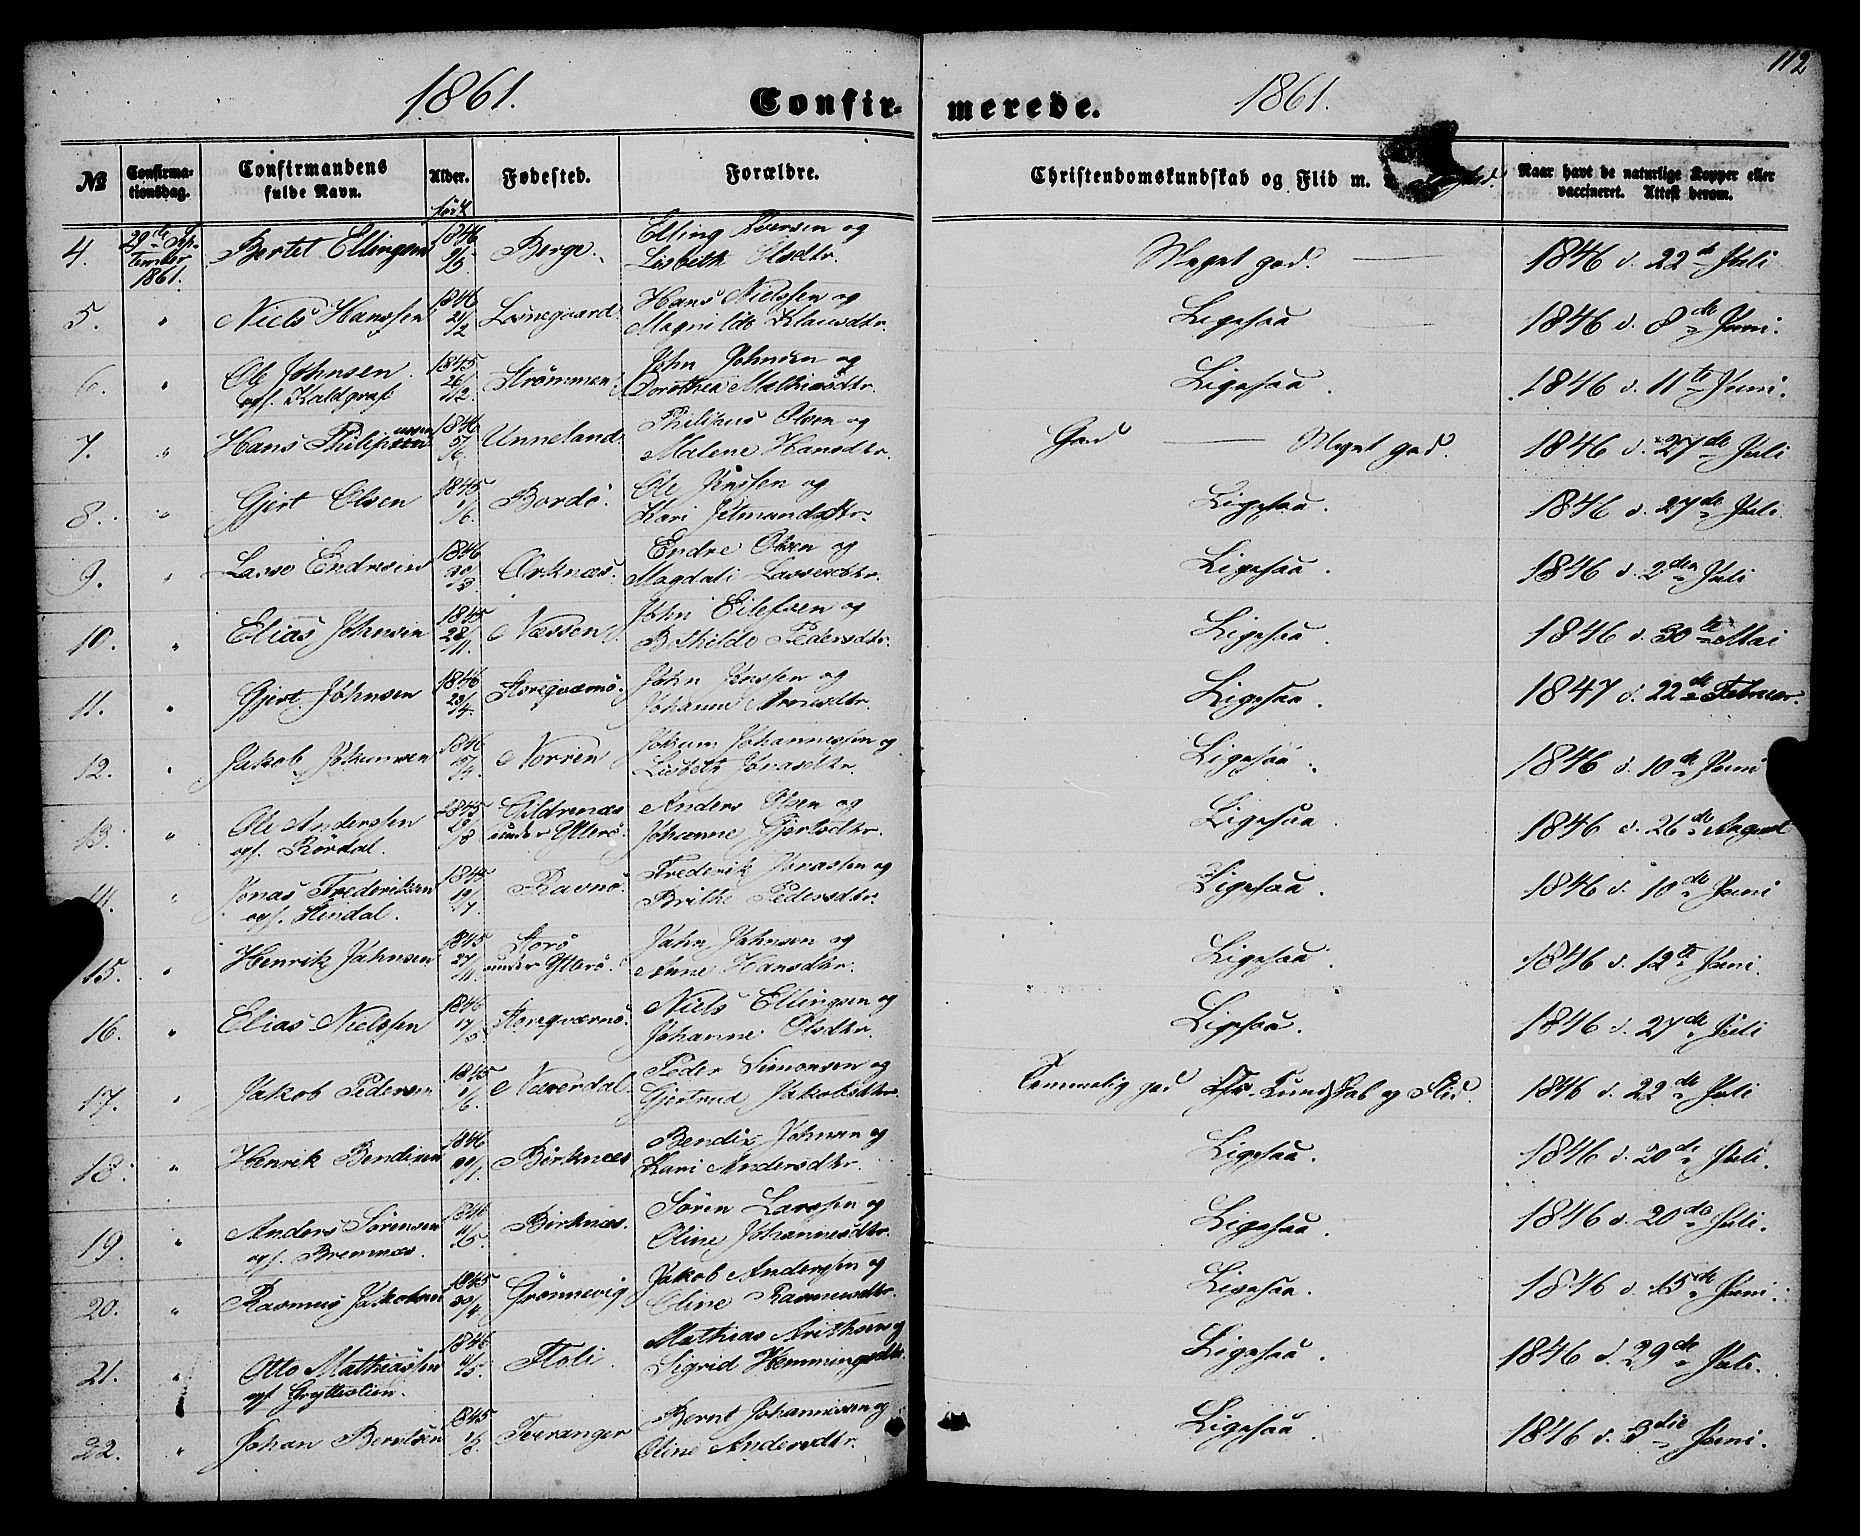 112
1861.
Confir-
merede.
1861.
№
Confirma-
tionsdag.
Confirmandens
fulde Navn.
Alder.
Fødested.
Forældre.
Christendomskundskab og Flid m.
Naar havt de naturlige Kopper eller
vaccineret. Attest derom.
født
4. 29de Sep-
tember
1861. Bertel Ellingsen 1846 Berge. Elling Iversen og
Lisbeth Olsdtr. Meget god. 1846 d. 22d Juli
5. " Niels Hanssen 1846 21/2 Hans Nielssen og
Magnilde Klausdtr. Ligesaa 1846 d. 8de Juni.
6. " Ole Johnsen
ogs. Kaldgraf 1845 26/12 Strømmen. John Johnsen og
Dorothea Mathiasdtr. Ligesaa. 1846 d. 11te Juni.
7. " Hans Philipussen 1846 5/6 Unneland. Philipus Olsen og
Malene Hansdtr. God Meget god. 1846 d. 27de Juli
8. " Gjert Olsen 1845 1/6 Bordö. Ole Jenssen og
Kari Jetmundsdtr. Ligesaa. 1846 d. 27de Juli
9. " Lasse Endresen 1846 Orknæs. Endre Olsen og
Magdali Lassesdtr. Ligesaa. 1846 d. 2den Juli
10. " Elias Johnsen 1845 28/11. Næssen. John Eilefsen og
Bothilde Pedersdtr. Ligesaa. 1846 d. 30te Mai
11. " Gjert Johnsen 1846 23/4. Storeqværnö. John Jenssen og
Johanne Arnesdtr. Ligesaa. 1847 d. 22de Februar.
12. " Jakob Jokumsen 1846 Norren Jokum Johannessen og
Lisbeth Jonasdtr. Ligesaa. 1846 d. 10de Juni
13. " Ole Anderssen
ogs. Rördal. 1845 Gildrenæs
under Ytterö. Anders Olsen og
Johanne Gjertsdtr. Ligesaa. 1846 d. 26de August
14. " Jonas Frederiksen
ogs. Stendal. 1845 Ravnö. Frederik Jonassen og
Brithe Pedersdtr. Ligesaa. 1846 d. 10de Juni
15. " Henrik Jahnsen 1845 27/11. Storö
under Ytterö. Jahn Jahnsen og
Anne Hansdtr. Ligesaa. 1846 d. 12te Juni.
16. " Elias Nielssen 1846 17/5 Storeqværnö. Niels Ellingsen og
Johanne Olsdtr. Ligesaa. 1846 d. 27de Juli
17. " Jakob Pedersen 1845 1/6. Naverdal. Peder Simonsen og
Gjertrud Jakobsdtr. Temmelig god Chr. Kundskab og Flid. 1846 d. 22de Juli
18. " Henrik Bendixen 1846 Birknæs Bendix Johnsen og
Kari Andersdtr. Ligesaa. 1846 d. 20de Juli.
19. " Anders Sörensen
ogs. Bremnæs. 1846 Birknæs. Sören Larssen og
Oline Johannesdtr. Ligesaa. 1846 d. 20de Juli.
20. " Rasmus Jakobsen 1845 30/4 Grönnevig Jakob Anderssen og
Oline Rasmusdtr. Ligesaa. 1846 d. 15de Juni.
21. " Otto Mathiassen
ogs. Gryttelien. 1846 Stoli. Mathias Arithsen og
Sigrid Hemmingsdtr. Ligesaa. 1846 d. 29de Juli.
22. " Johan Berntsen 1845 Teeranger Bernt Johannessen og
Oline Andersdtr. Ligesaa. 1846 d. 3die Juni.